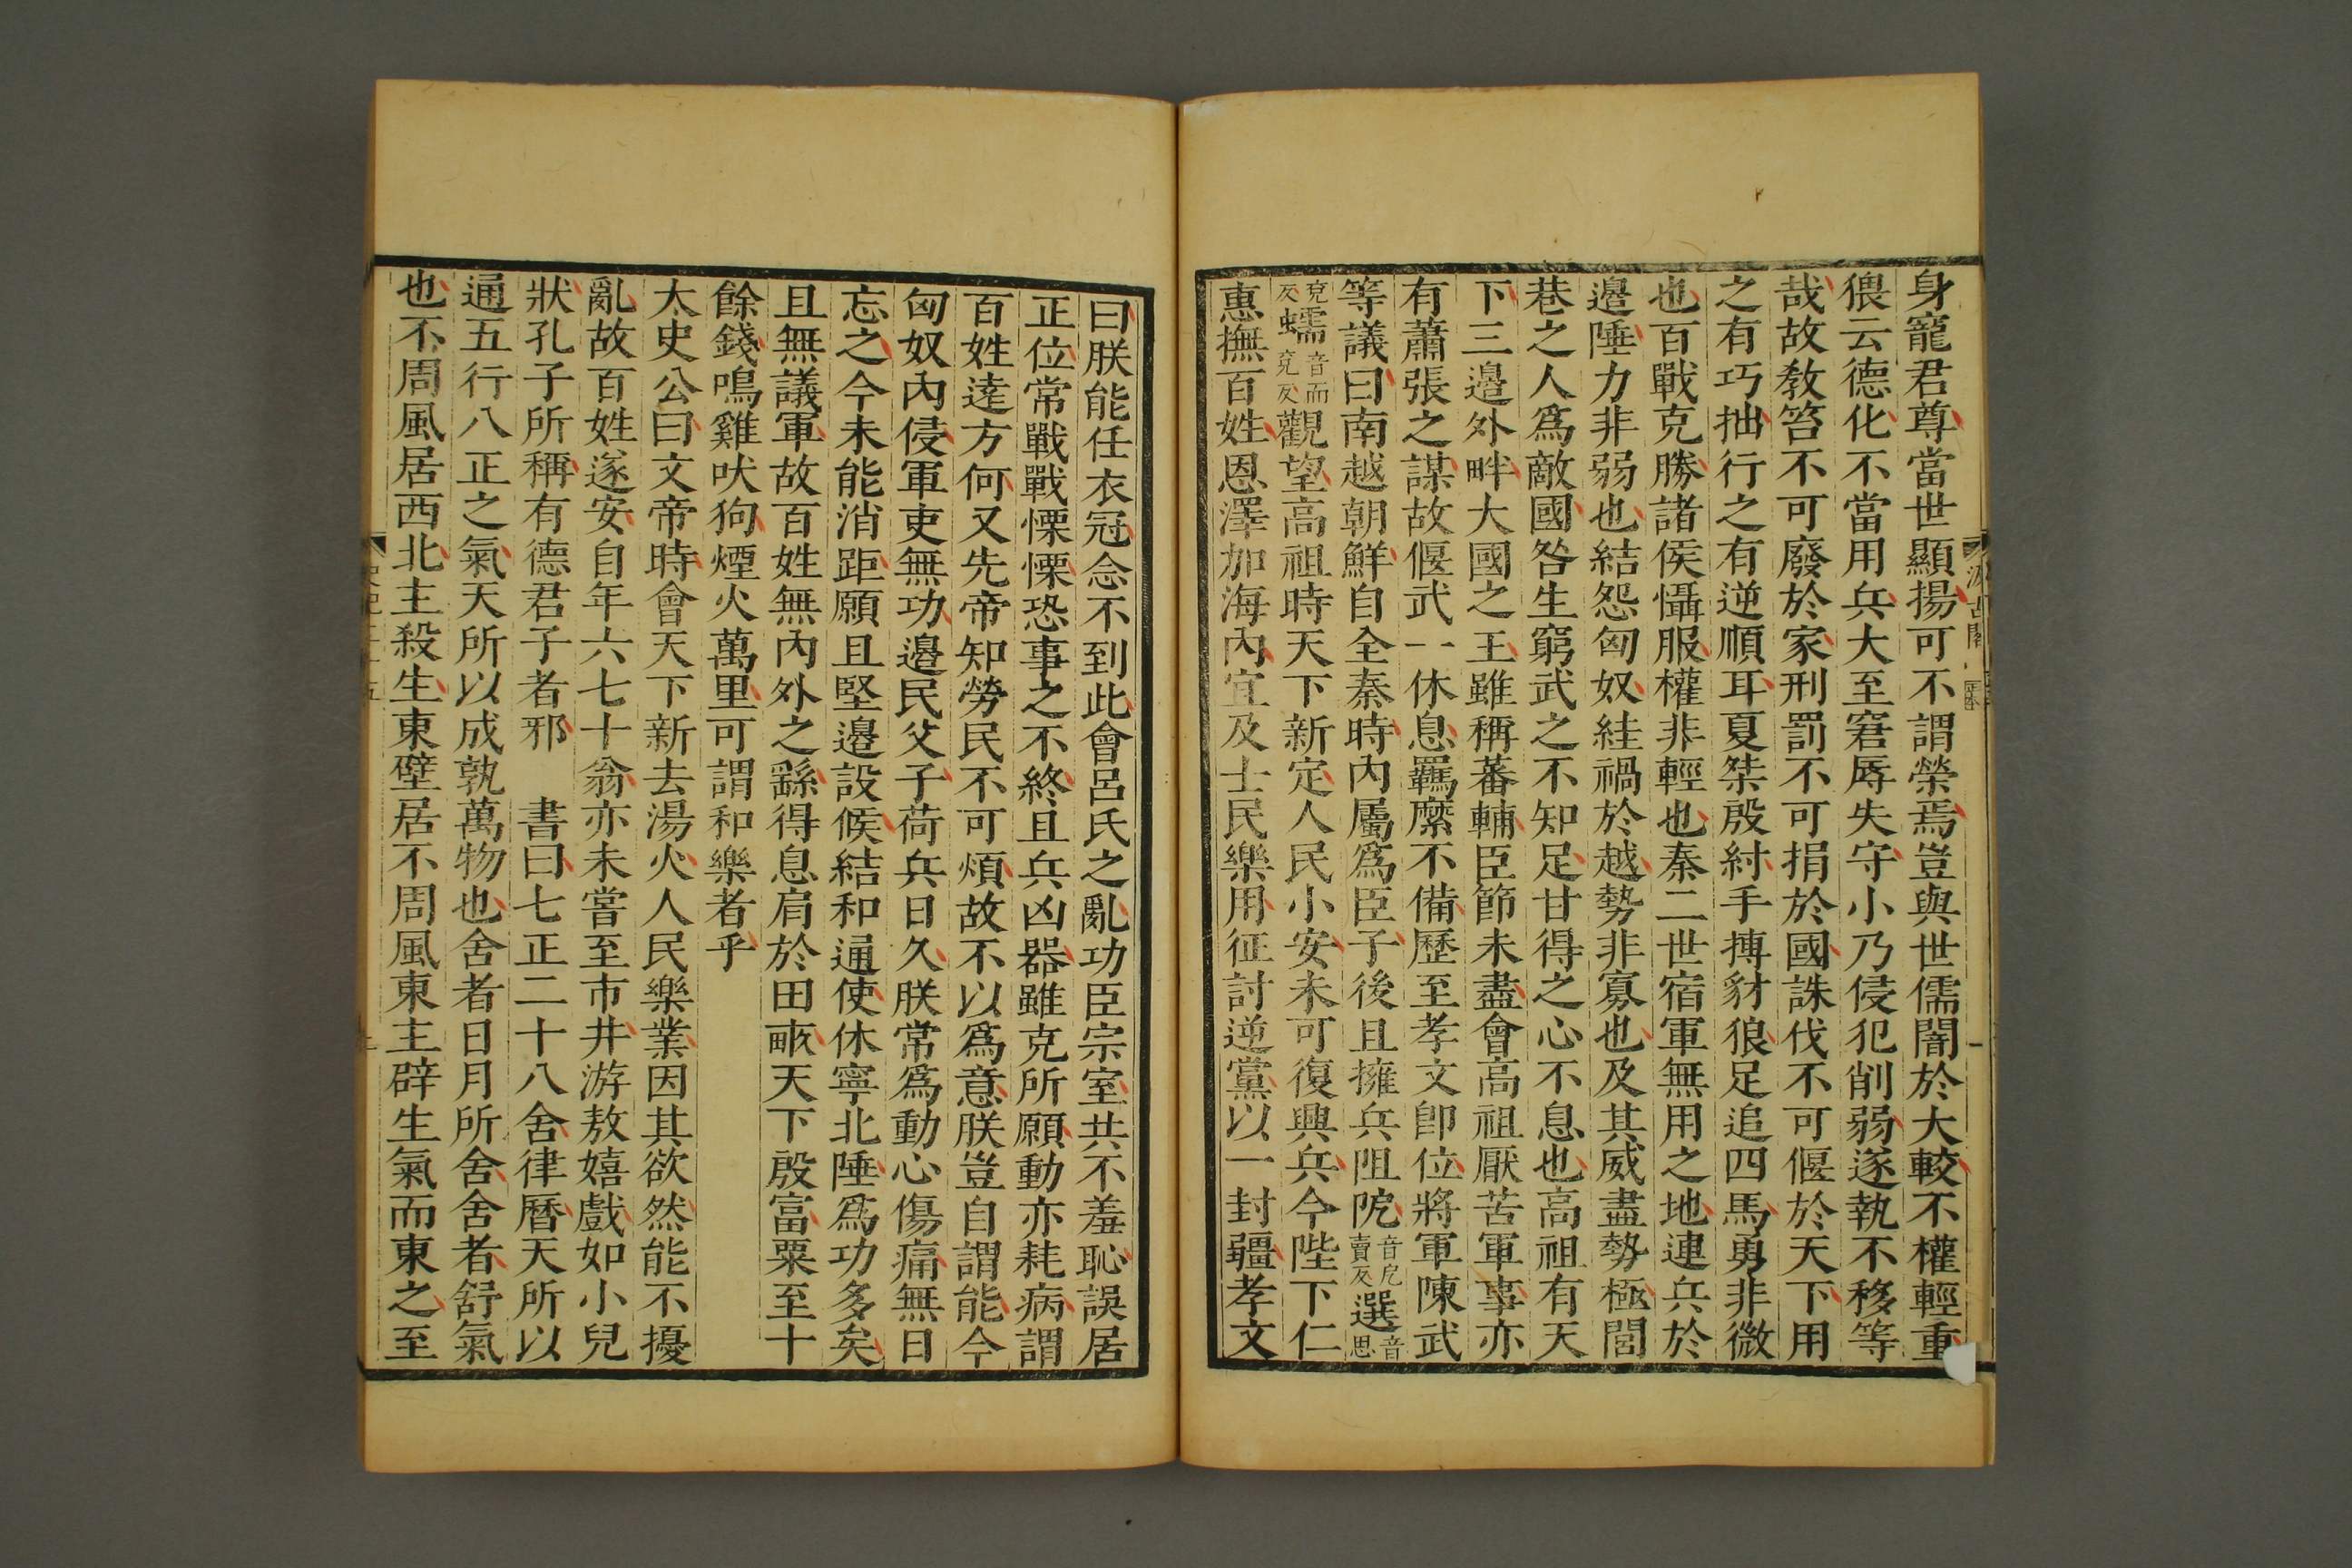 身寵君尊當世顯揚可不謂榮焉豈與世儒闇於大較不權輕重
猥云德化不當用兵大至窘辱失守小乃侵犯削弱遂執不移等
哉故敎笞不可廢於家刑罰不可捐於國誅伐不可偃於天下用
之有巧拙行之有逆順耳夏桀殷紂手搏豺狼足追四馬勇非微
也百戰克勝諸侯懾服權非輕也秦二世宿軍無用之地連兵於
邉陲力非弱也結怨匈奴絓禍於越勢非寡也及其威盡勢極閭
巷之人爲敵國咎生窮武之不知足甘得之心不息也高祖有天
下三邉外畔大國之王雖稱蕃輔臣節未盡會高祖厭苦軍事亦
有蕭張之謀故偃武一休息羈縻不備歷至孝文卽位將軍陳武
等議曰南越朝鮮自全秦時內屬爲臣子後且擁兵阻阸音戹賣反選音思
兗反蠕音而兗反觀望高祖時天下新定人民小安未可復興兵今陛下仁
惠撫百姓恩澤加海內宜及士民樂用征討逆黨以一封疆孝文
曰朕能任衣冠念不到此會呂氏之亂功臣宗室共不羞恥誤居
正位常戰戰慄慄恐事之不終且兵凶器雖克所願動亦耗病謂
百姓逺方何又先帝知勞民不可煩故不以爲意朕豈自謂能今
匈奴內侵軍吏無功邉民父子荷兵日久朕常爲動心傷痛無日
忘之今未能消距願且堅邉設候結和通使休寧北陲爲功多矣
且無議軍故百姓無內外之繇得息肩於田畝天下殷富粟至十
餘錢鳴雞吠狗煙火萬里可謂和樂者乎
太史公曰文帝時會天下新去湯火人民樂業因其欲然能不擾
亂故百姓遂安自年六七十翁亦未嘗至市井游敖嬉戲如小兒
狀孔子所稱有德君子者邪　書曰七正二十八舍律曆天所以
通五行八正之氣天所以成孰萬物也舍者日月所舍舍者舒氣
也不周風居西北主殺生東壁居不周風東主辟生氣而東之至